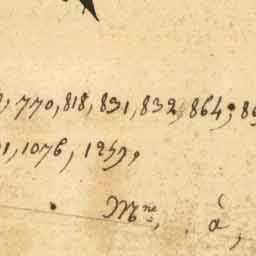 , 770, 818, 831, 832, 864, 8
1, 1076, 1259,
Mne, à,